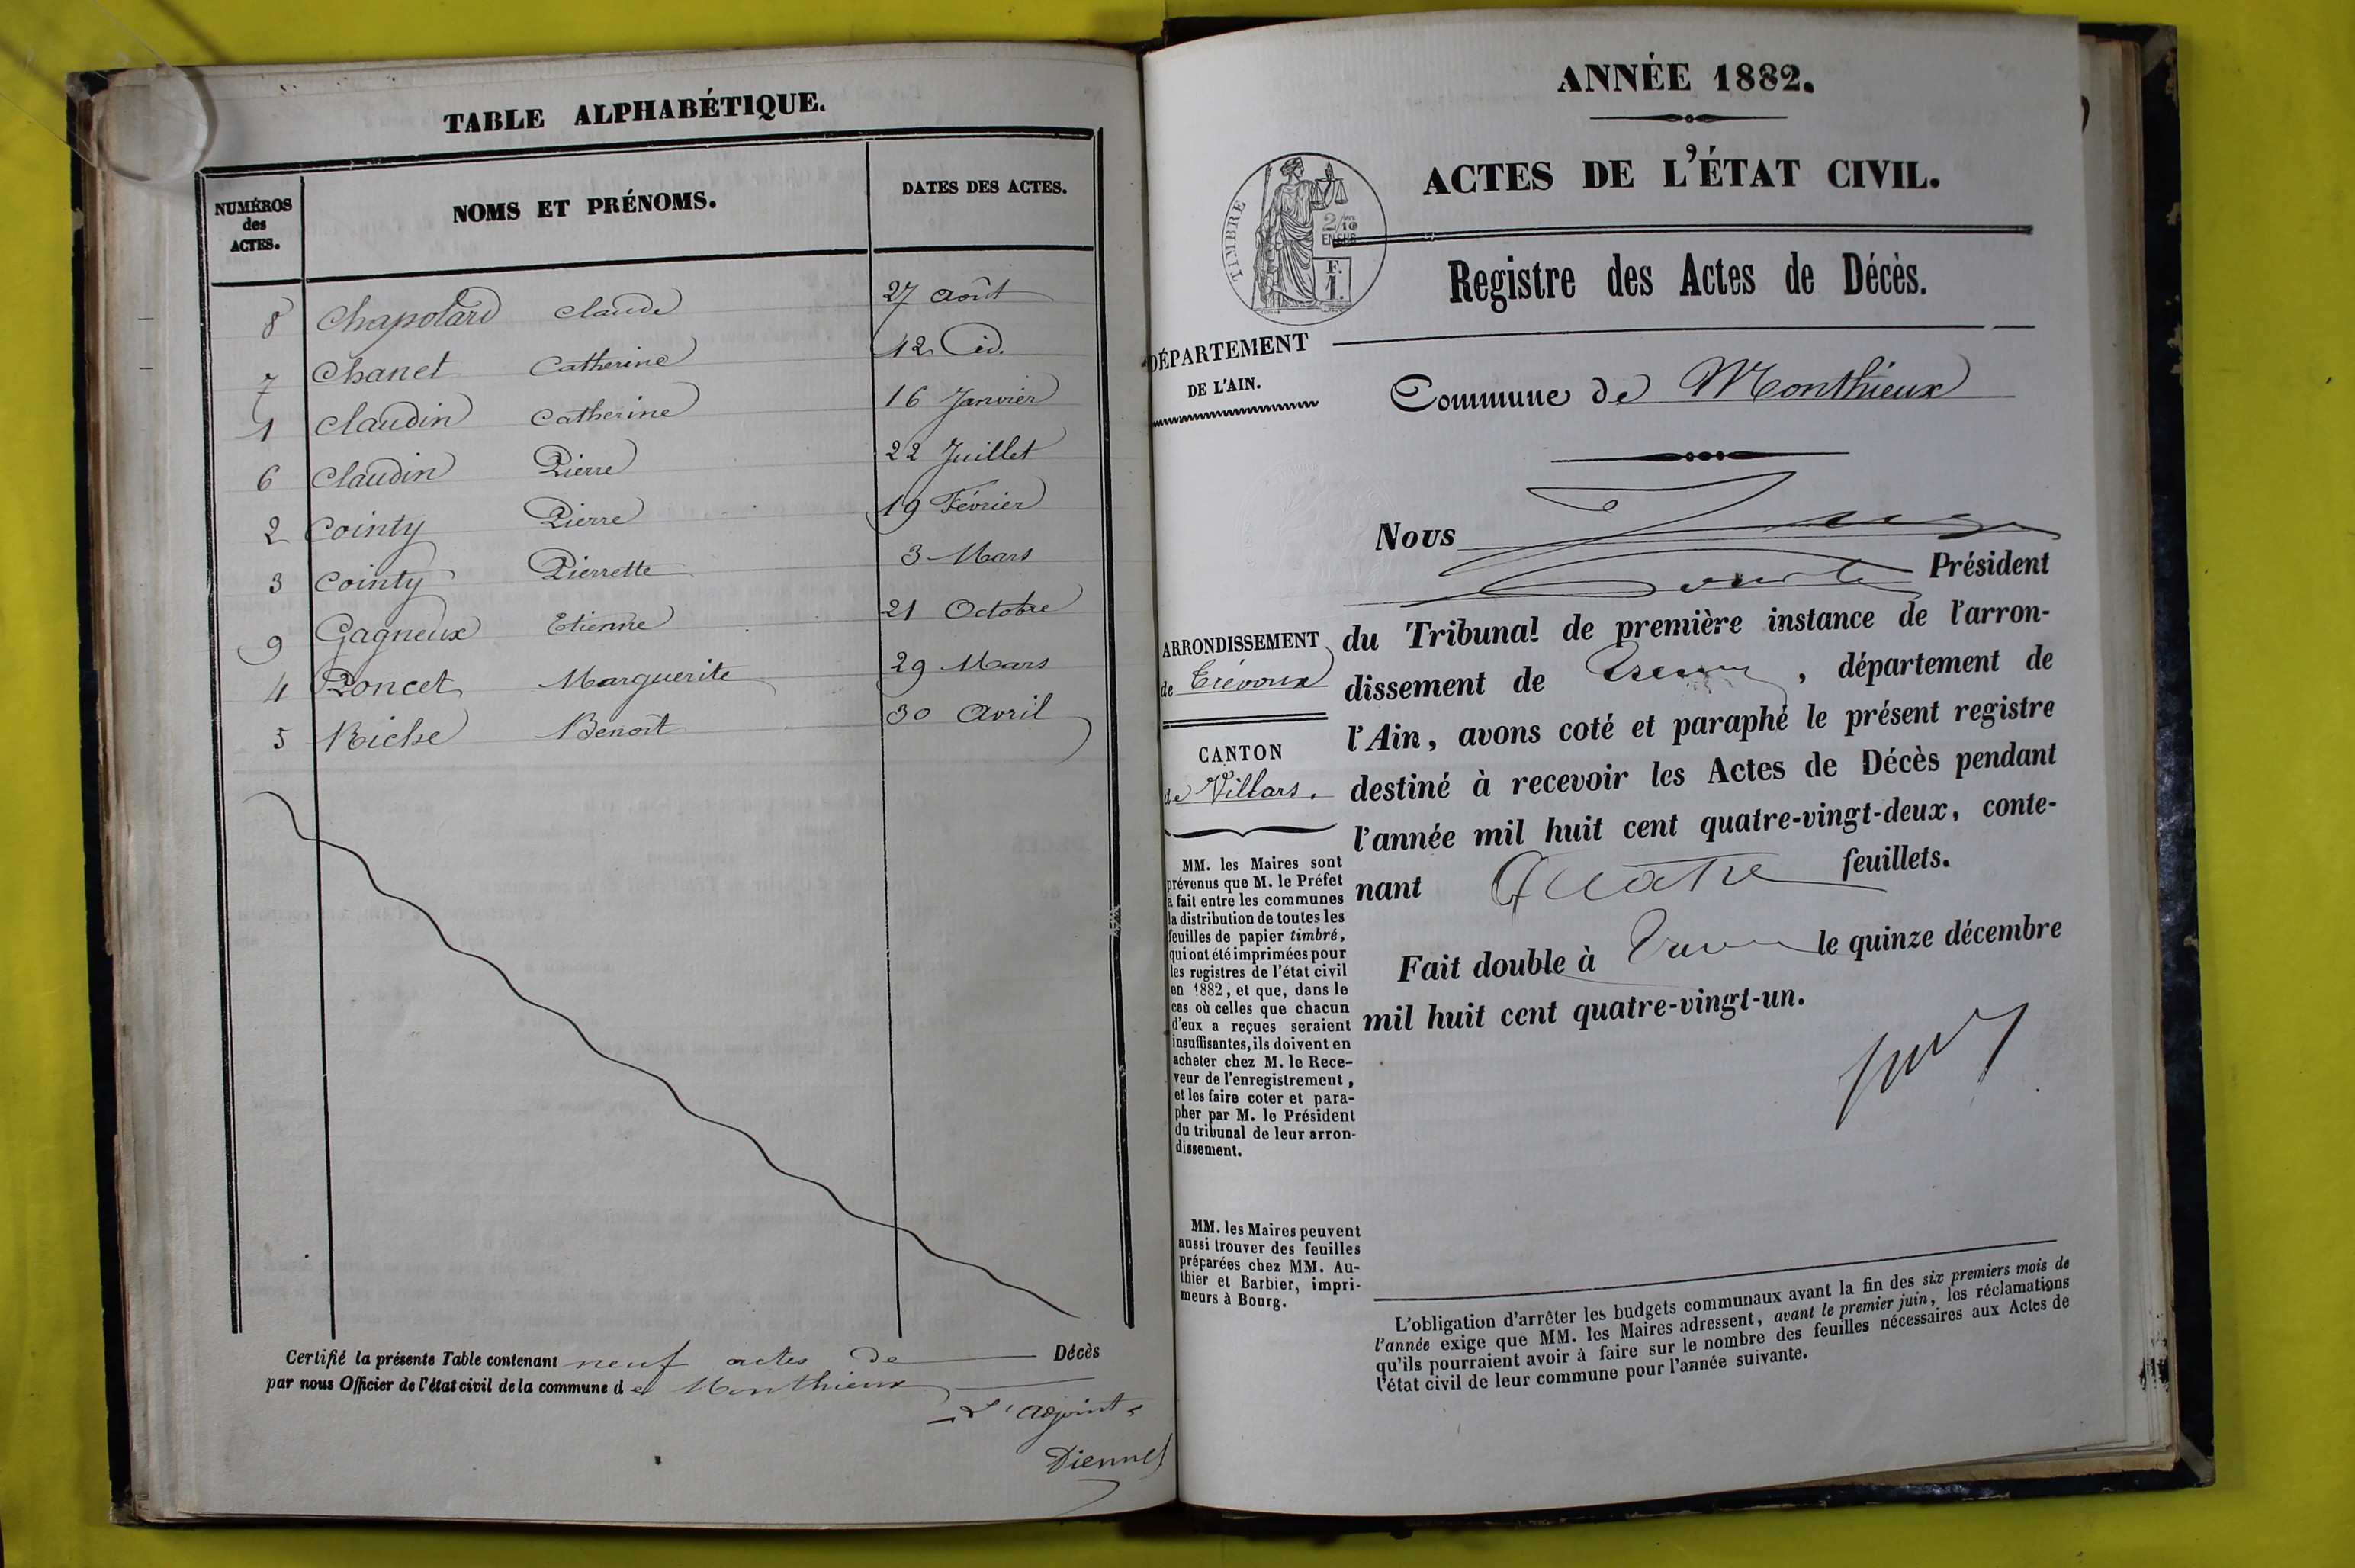 TABLE ALPHABÉTIQUE.
NUMÉROS
des
ACTES.
NOMS ET PRÉNOMS.
DATES DES ACTES.
8 Chapolard Claude 27 Août
7 Chanel Catherine 12 id.
1 Claudin Catherine 16 Janvier
6 Claudin Pierre 22 Juillet
2 Cointy Pierre 19 Février
3 Cointy Pierrette 3 Mars
9 Gagneux Etienne 21 Octobre
4 Poncet Marguerite 29 Mars
5 Riche Benoit 30 Avril
Certifié la présente Table contenant neuf actes de Décès
par nous Officier de l'état civil de la commune de Monthieux
L'adjoint
ANNÉE 1882.
ACTES DE L'ÉTAT CIVIL.
TIMBRE
2/10
EN SUS
F.
1.
Registre des Actes de Décès.
DÉPARTEMENT
DE L'AIN.
Commune de Monthieux
Nous
Président
ARRONDISSEMENT
de Trévoux
CANTON
de Villars.
du Tribunal de première instance de l'arron-
dissement de , département de
l'Ain, avons coté et paraphé le présent registre
destiné à recevoir les Actes de Décès pendant
l'année mil huit cent quatre-vingt-deux, conte-
nant Quatre feuillets.
Fait double à le quinze décembre
mil huit cent quatre-vingt-un.
MM. les Maires sont
prévenus que M. le Préfet
a fait entre les communes
la distribution de toutes les
feuilles de papier timbré,
qui ont été imprimées pour
les registres de l'état civil
en 1882, et que, dans le
cas où celles que chacun
d'eux a reçues seraient
insuffisantes, ils doivent en
acheter chez M. le Rece-
veur de l'enregistrement,
et les faire coter et para-
pher par M. le Président
du tribunal de leur arron-
dissement.
MM. les Maires peuvent
aussi trouver des feuilles
préparées chez MM. Au-
thier et Barbier, impri-
meurs à Bourg.
L'obligation d'arrêter les budgets communaux avant la fin des six premiers mois de
l'année exige que MM. les Maires adressent, avant le premier juin, les réclamations
qu'ils pourraient avoir à faire sur le nombre des feuilles nécessaires aux Actes de
l'état civil de leur commune pour l'année suivante.